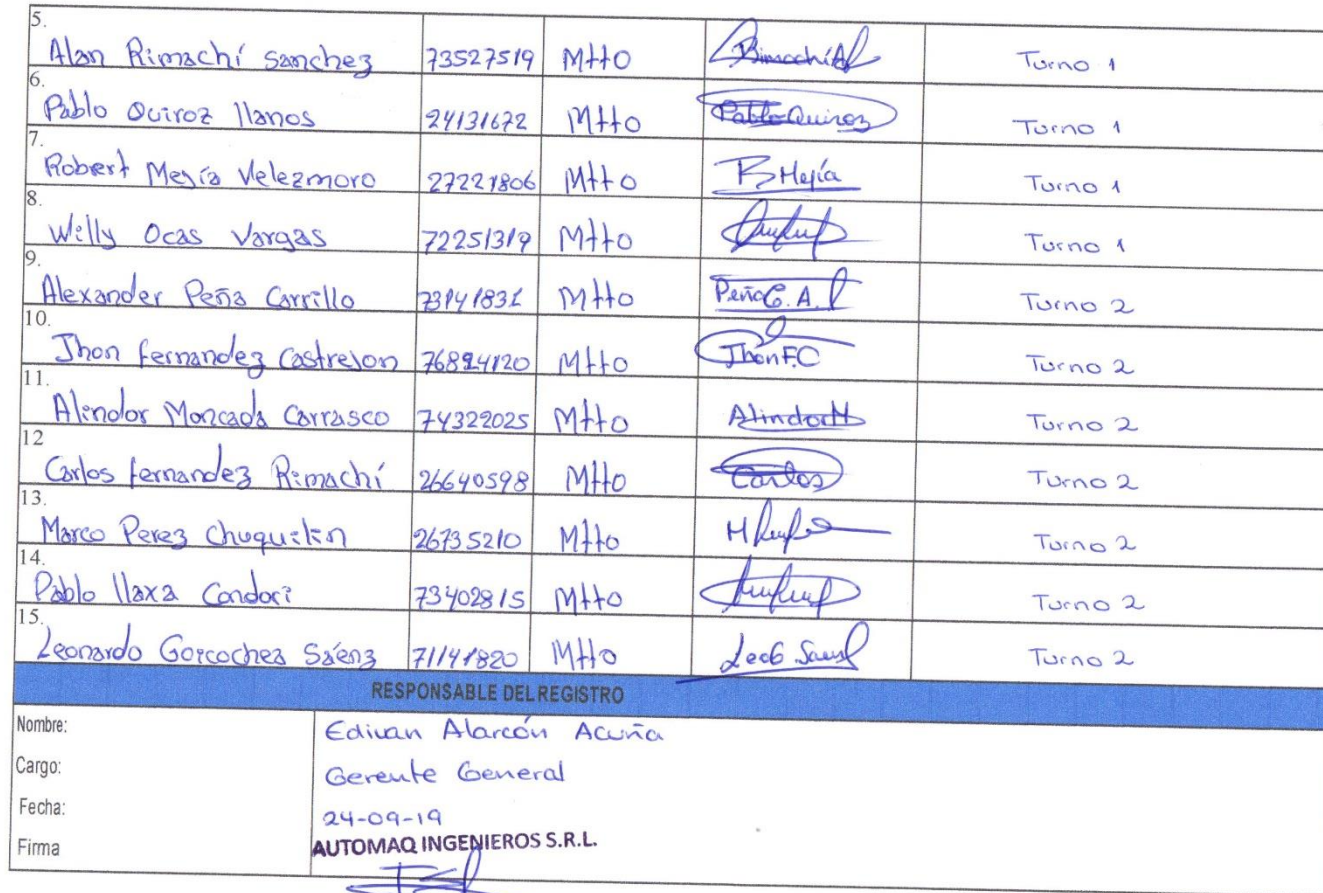 5.
Alan Rimachí Sanchez 73527519 Mtto RimachíA Turno 1
6.
Pablo Quiroz llanos 24131672 Mtto Pablo Quiroz Turno 1
7.
Robert Mejía Velezmoro 27221806 Mtto R Mejía Turno 1
8.
Willy Ocas Vargas 72251319 Mtto Turno 1
9.
Alexander Peña Carrillo 73141831 Mtto Peña C. A. Turno 2
10.
Jhon fernandez Castrejon 76824120 Mtto Jhon F.C Turno 2
11.
Alindor Moncada Carrasco 74322025 Mtto Alindor M Turno 2
12
Carlos fernandez Rimachí 26640598 Mtto Carlos Turno 2
13.
Marco Perez Chuquilin 26735210 Mtto Turno 2
14.
Pablo llaxa Condori 73402815 Mtto Turno 2
15.
Leonardo Goicochea Sáenz 71141820 Mtto Turno 2
RESPONSABLE DEL REGISTRO
Nombre: Edivan Alarcón Acuña
Cargo: Gerente General
Fecha: 24-09-19
Firma AUTOMAQ INGENIEROS S.R.L.